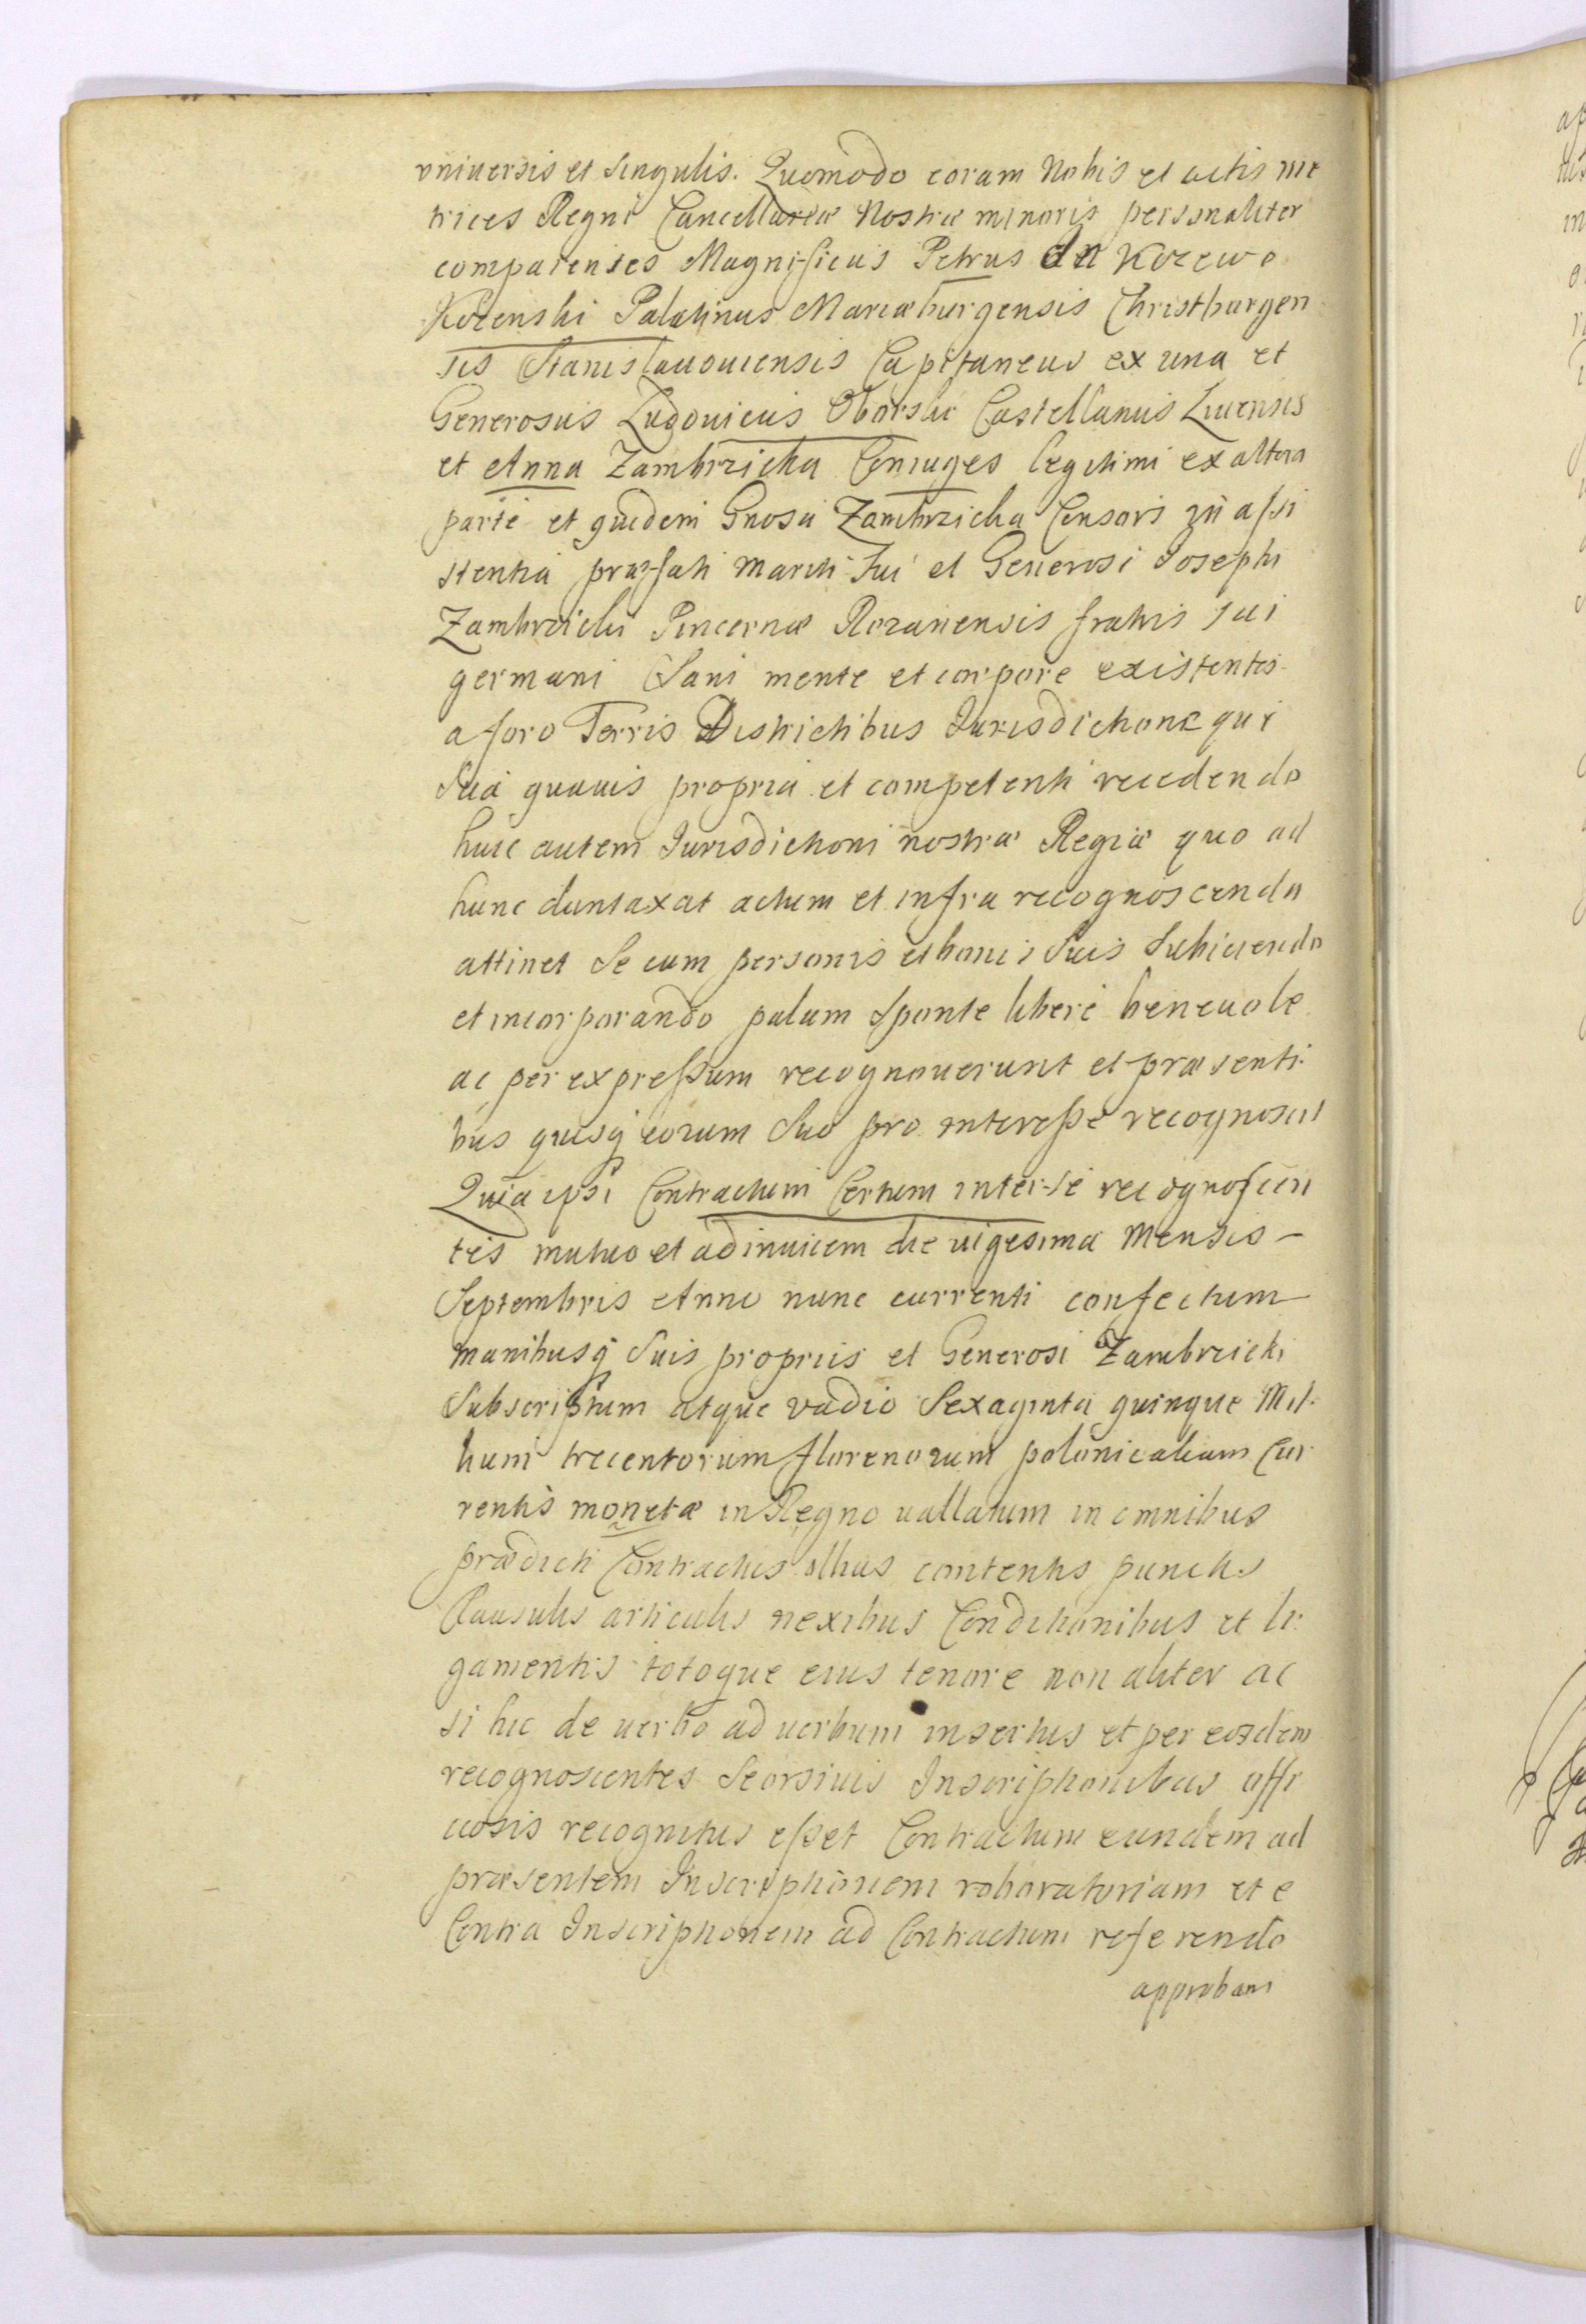 vniuersis et singulis. Quomodo coram Nobis et actis me
trices Regni Cancellariæ Nostræ minoris personaliter
comparentes Magnificus Petrus de Kczewo
Kczenski Palatinus Mariæburgensis Christburgen
sis Stanislauouiensis Capitaneus ex una et
Generosus Ludouicus Oborski Castellanus Liuensis
et Anna Zambrzicka Coniuges legitimi ex altera
parte et quidem Gnosa Zambrzicka Consors in assi
stentia præfati Mariti sui et Generosi Josephi
Zambrzicki Pincernæ Rozanensis fratris sui
germani Sani mente et corpore existentes
a foro Terris Districtibus Jurisdictione qui
sua quauis propria et competenti recedendo
huic autem Jurisdictioni nostræ Regiæ quo ad
hunc duntaxat actum et infra recognoscenda
attinet se cum personis et bonis suis subiiciendo
et incorporando palam sponte libere beneuole
ac per expressum recognouerunt et præsenti
bus quisq eorum suo pro interesse recognoscit
Quia ipsi Contractum Certum inter se recognoscen
tes mutuo et adinuicem die uigesima Mensis –
Septembris Anno nunc currenti confectum
manibusq suis propriis et Generosi Zambrzicki
Subscriptum atque vadio Sexaginta quinque Mil
lium trecentorum florenorum polonicalium Cur
rentis monetæ in Regno uallatum in omnibus
prædicti Contractus illius contentis punctis
Clausulis articulis nexibus Conditionibus et li
gamentis totoque eius tenore non aliter ac
si hic de uerbo ad uerbum insertus et per eosdem
recognoscentes Seorsiuis Inscriptionibus offi
ciosis recognitus esset Contractum eundem ad
præsentem Inscriptionem roboratoriam et e
Contra Inscriptionem ad Contractum referendo
approbant